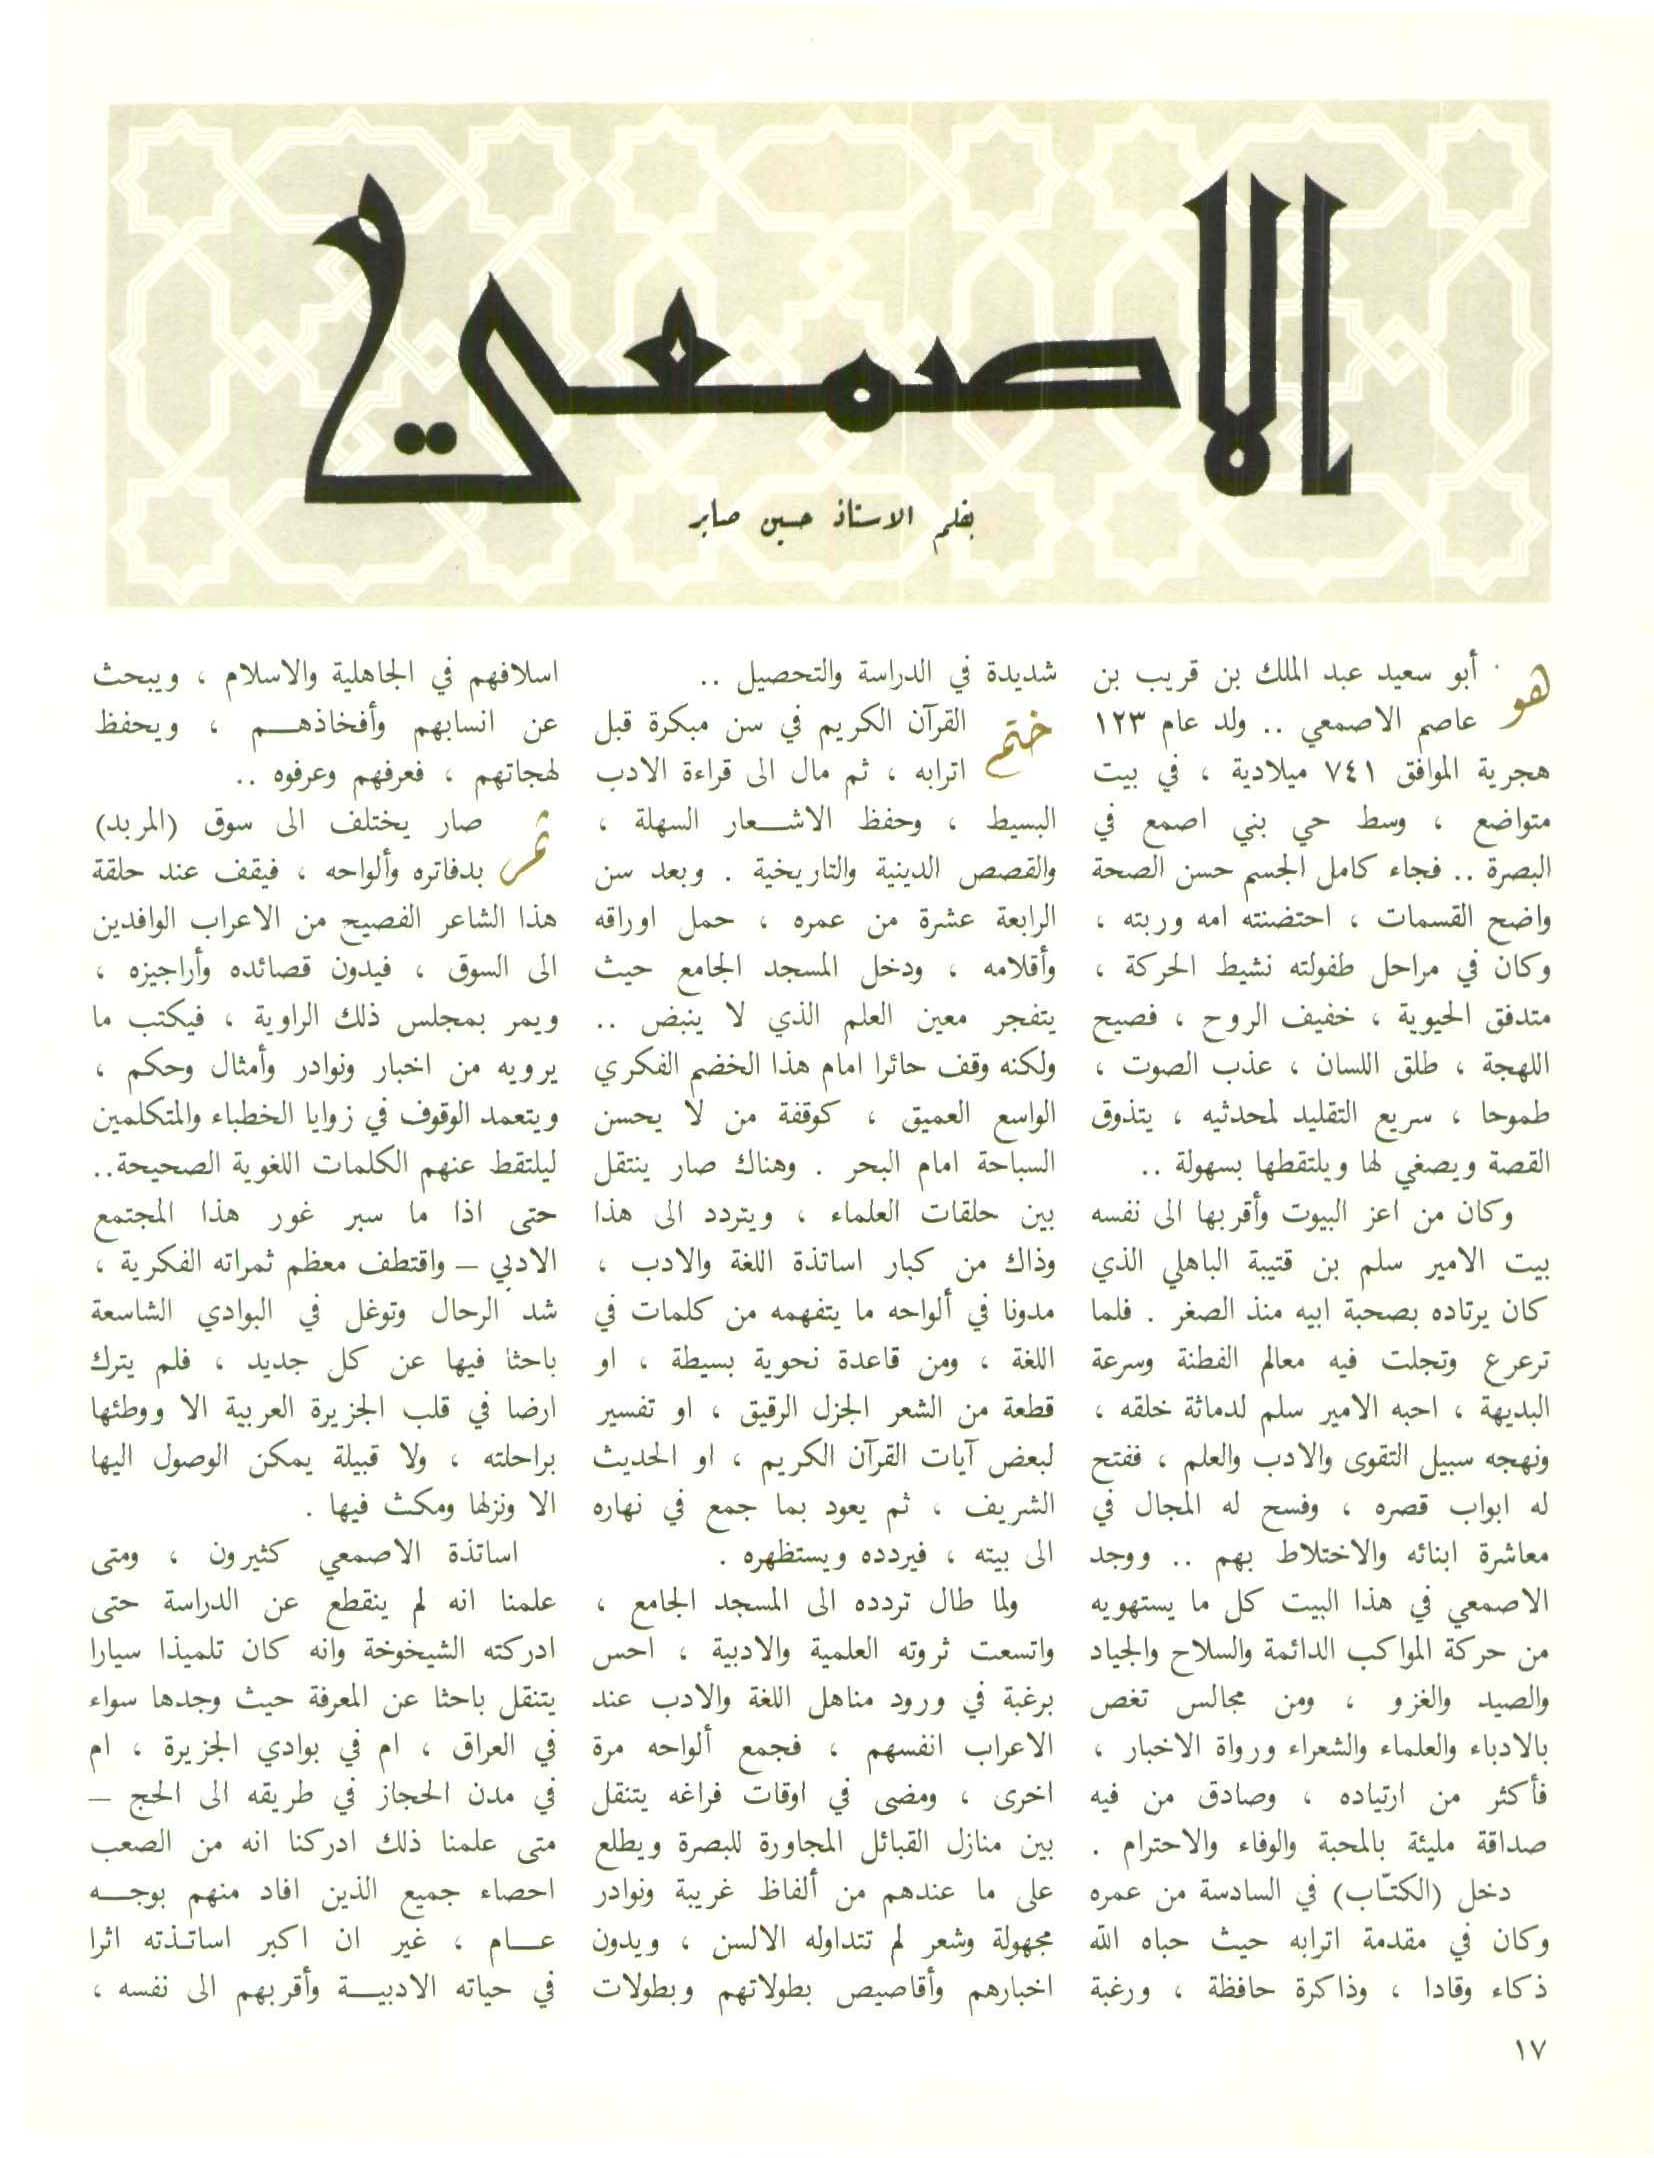 الاصمعي
بقلم الاستاذ حسين صابر
هو أبو سعيد عبد الملك بن قريب بن
عاصم الاصمعي .. ولد عام ١٢٣
هجرية الموافق ٧٤١ ميلادية ، في بيت
متواضع ، وسط حي بني اصمع في
البصرة .. فجاء كامل الجسم حسن الصحة
واضح القسمات ، احتضنته امه وربته ،
وكان في مراحل طفولته نشيط الحركة ،
متدفق الحيوية ، خفيف الروح ، فصيح
اللهجة ، طلق اللسان ، عذب الصوت ،
طموحا ، سريع التقليد لمحدثيه ، يتذوق
القصة ويصغي لها ويلتقطها بسهولة ..
وكان من اعز البيوت وأقربها الى نفسه
بيت الامير سلم بن قتيبة الباهلي الذي
كان يرتاده بصحبة ابيه منذ الصغر . فلما
ترعرع وتجلت فيه معالم الفطنة وسرعة
البديهة ، احبه الامير سلم لدماثة خلقه ،
ونهجه سبيل التقوى والادب والعلم ، ففتح
له ابواب قصره ، وفسح له المجال في
معاشرة ابنائه والاختلاط بهم .. ووجد
الاصمعي في هذا البيت كل ما يستهويه
من حركة المواكب الدائمة والسلاح والجياد
والصيد والغزو ، ومن مجالس تغص
بالادباء والعلماء والشعراء ورواة الاخبار ،
فأكثر من ارتياده ، وصادق من فيه
صداقة مليئة بالمحبة والوفاء والاحترام .
دخل (الكتّاب) في السادسة من عمره
وكان في مقدمة اترابه حيث حباه الله
ذكاء وقادا ، وذاكرة حافظة ، ورغبة
شديدة في الدراسة والتحصيل ..
ختم القرآن الكريم في سن مبكرة قبل
اترابه ، ثم مال الى قراءة الادب
البسيط ، وحفظ الاشعار السهلة ،
والقصص الدينية والتاريخية . وبعد سن
الرابعة عشرة من عمره ، حمل اوراقه
وأقلامه ، ودخل المسجد الجامع حيث
يتفجر معين العلم الذي لا ينبض ..
ولكنه وقف حائرا امام هذا الخضم الفكري
الواسع العميق ، كوقفة من لا يحسن
السباحة امام البحر . وهناك صار ينتقل
بين حلقات العلماء ، ويتردد الى هذا
وذاك من كبار اساتذة اللغة والادب ،
مدونا في ألواحه ما يتفهمه من كلمات في
اللغة ، ومن قاعدة نحوية بسيطة ، او
قطعة من الشعر الجزل الرقيق ، او تفسير
لبعض آيات القرآن الكريم ، او الحديث
الشريف ، ثم يعود بما جمع في نهاره
الى بيته ، فيردده ويستظهره .
ولما طال تردده الى المسجد الجامع ،
واتسعت ثروته العلمية والادبية ، احس
برغبة في ورود مناهل اللغة والادب عند
الاعراب انفسهم ، فجمع ألواحه مرة
اخرى ، ومضى في اوقات فراغه يتنقل
بين منازل القبائل المجاورة للبصرة ويطلع
على ما عندهم من ألفاظ غريبة ونوادر
مجهولة وشعر لم تتداوله الالسن ، ويدون
اخبارهم وأقاصيص بطولاتهم وبطولات
اسلافهم في الجاهلية والاسلام ، ويبحث
عن انسابهم وأفخاذهم ، ويحفظ
لهجاتهم ، فعرفهم وعرفوه ..
ثم صار يختلف الى سوق (المربد)
بدفاتره وألواحه ، فيقف عند حلقة
هذا الشاعر الفصيح من الاعراب الوافدين
الى السوق ، فيدون قصائده وأراجيزه ،
ويمر بمجلس ذلك الراوية ، فيكتب ما
يرويه من اخبار ونوادر وأمثال وحكم ،
ويتعمد الوقوف في زوايا الخطباء والمتكلمين
ليلتقط عنهم الكلمات اللغوية الصحيحة..
حتى اذا ما سبر غور هذا المجتمع
الادبي – واقتطف معظم ثمراته الفكرية ،
شد الرحال وتوغل في البوادي الشاسعة
باحثا فيها عن كل جديد ، فلم يترك
ارضا في قلب الجزيرة العربية الا ووطئها
براحلته ، ولا قبيلة يمكن الوصول اليها
الا ونزلها ومكث فيها .
اساتذة الاصمعي كثيرون ، ومتى
علمنا انه لم ينقطع عن الدراسة حتى
ادركته الشيخوخة وانه كان تلميذا سيارا
يتنقل باحثا عن المعرفة حيث وجدها سواء
في العراق ، ام في بوادي الجزيرة ، ام
في مدن الحجاز في طريقه الى الحج –
متى علمنا ذلك ادركنا انه من الصعب
احصاء جميع الذين افاد منهم بوجه
عام ، غير ان اكبر اساتذته اثرا
في حياته الادبية وأقربهم الى نفسه ،
١٧